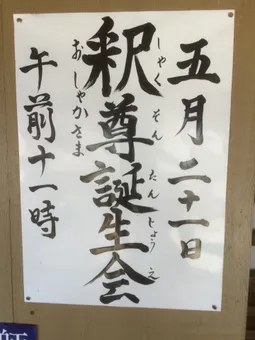 五月二十一日
釈尊誕生会
しゃくそんたんじょうえ
おしゃかさま
午前十一時